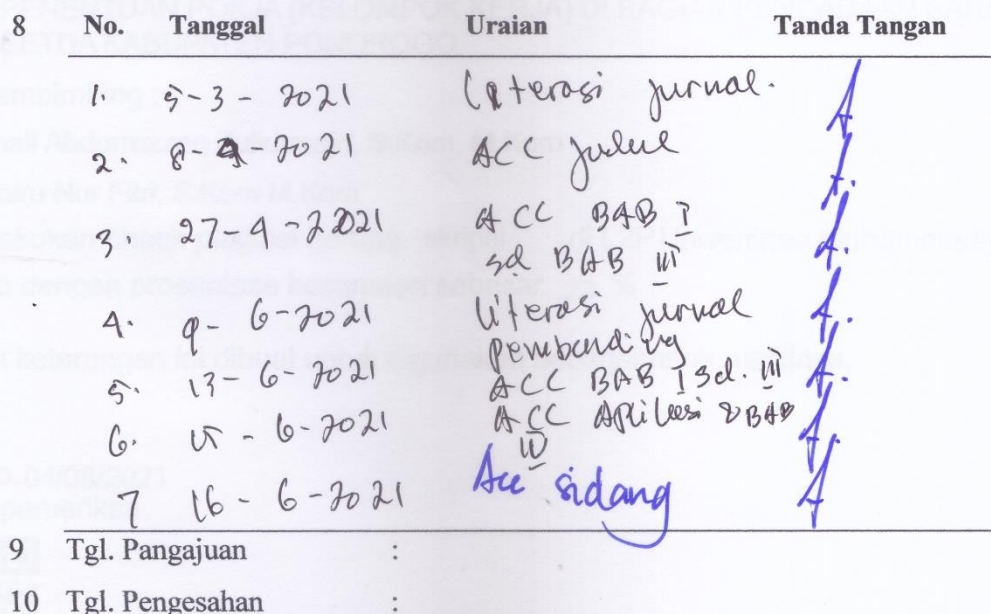 8 No. Tanggal Uraian Tanda Tangan
1. 5-3-2021 Literasi jurnal.
2. 8-4-2021 ACC judul
3. 27-4-2021 ACC BAB I
sd BAB III
4. 9-6-2021 literasi jurnal
pembanding
5. 13-6-2021 ACC BAB I sd. III
6. 15-6-2021 ACC Aplikasi & BAB
IV
7 16-6-2021 Acc sidang
9 Tgl. Pangajuan :
10 Tgl. Pengesahan :